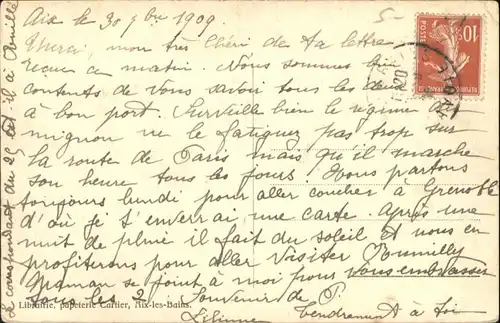 Aix le 30 9bre 1909
Merci, mon très chéri de ta lettre
reçue ce matin. Nous sommes bien
contents de vous savoir tous les deux
à bon port. Surveille bien le régime
mignon ne le fatiguez pas trop sur
la route de Paris mais qu'il marche
son heure tous les jours. Nous partons
toujours lundi pour aller coucher à Grenoble
d'où je t'enverrai une carte. Après une
nuit de pluie il fait du soleil et nous en
profiterons pour aller visiter Rumilly
Maman se joint à moi pour vous embrasser
tous les 2. Souvenir de P.
Lilianne Tendrement à toi
Librairie, papeterie Cartier, Aix-les-Bains.
Le correspondant du 29 est-il à Rumilly
10
POSTE
REPUBLIQUE FRANÇAISE